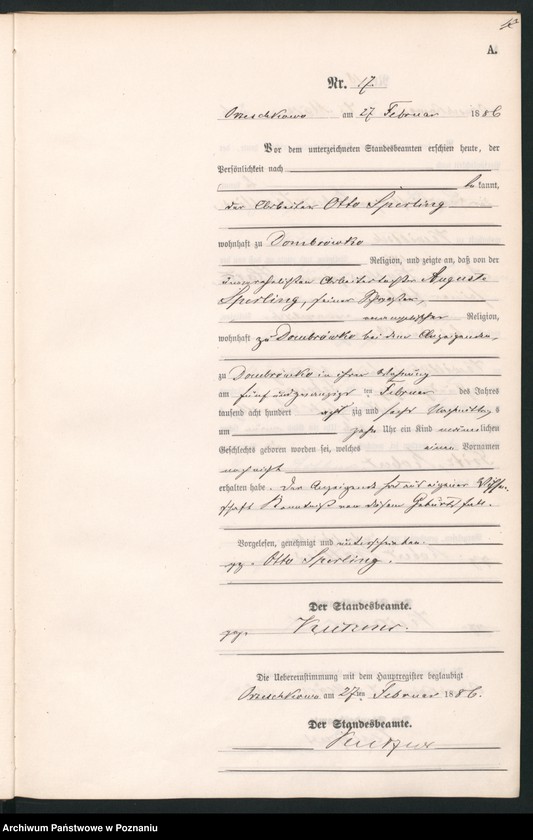 A.
Nr. 17.
Orzeschkowo am 27 Februar 1886
Vor dem unterzeichneten Standesbeamten erschien heute, der
Persönlichkeit nach
bekannt,
der Arbeiter Otto Sperling
wohnhaft zu Dombrówko
Religion, und zeigte an, daß von der
unverehelichten Arbeitertochter Auguste
Sperling, seiner Schwester,
evangelischer Religion,
wohnhaft zu Dombrówko bei dem Anzeigenden,
zu Dombrówko in ihrer Wohnung
am fünf und zwanzigsten Februar des Jahres
tausend acht hundert achtzig und sechs Nachmittags
um zehn Uhr ein Kind männlichen
Geschlechts geboren worden sei, welches einen Vornamen
noch nicht
erhalten habe. Der Anzeigende hat aus eigener Wissen-
schaft Kenntniß von diesem Geburtsfall.
Vorgelesen, genehmigt und unterschrieben.
gez. Otto Sperling.
Der Standesbeamte.
gez.
Die Uebereinstimmung mit dem Hauptregister beglaubigt
Orzeschkowo am 27ten Februar 1886.
Der Standesbeamte.
Archiwum Państwowe w Poznaniu